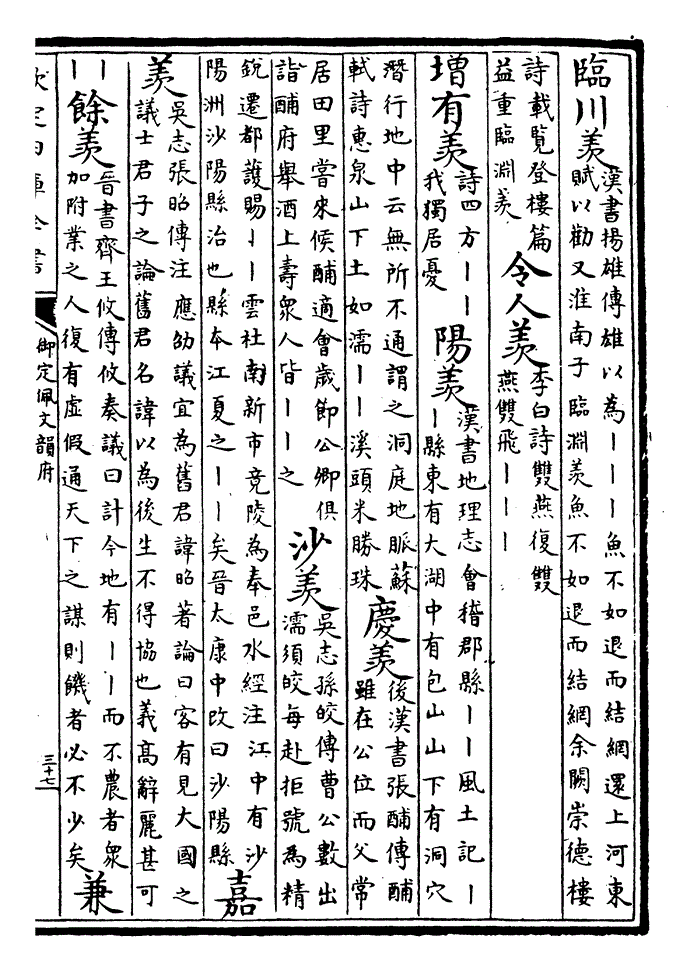 臨川羡
漢書揚雄傳雄以為丨丨丨魚不如退而結網還上河東
賦以勸又淮南子臨淵羡魚不如退而結網余闕崇德樓
詩載覽登樓篇
益重臨淵羡
令人羡
李白詩雙燕復雙
燕雙飛丨丨丨
增有羡
詩四方丨丨
我獨居憂
陽羡
漢書地理志會稽郡縣丨丨風土記丨
丨縣東有大湖中有包山山下有洞穴
潛行地中云無所不通謂之洞庭地脈蘇
軾詩惠泉山下土如濡丨丨溪頭米勝珠
慶羡
後漢書張酺傳酺
雖在公位而父常
居田里嘗來候酺適會歲節公卿俱
詣酺府舉酒上壽衆人皆丨丨之
沙羡
吳志孫皎傳曹公數出
濡須皎每赴拒號為精
銳遷都護賜丨丨雲杜南新市竟陵為奉邑水經注江中有沙
陽洲沙陽縣治也縣本江夏之丨丨矣晉太康中改曰沙陽縣
嘉
羡
吳志張昭傳注應劭議宜為舊君諱昭著論曰客有見大國之
議士君子之論舊君名諱以為後生不得協也義高辭麗甚可
丨
丨
餘羡
晉書齊王攸傳攸奏議曰計今地有丨丨而不農者衆
加附業之人復有虛假通天下之謀則饑者必不少矣
兼
欽定四庫全書
御定佩文韻府
三十七